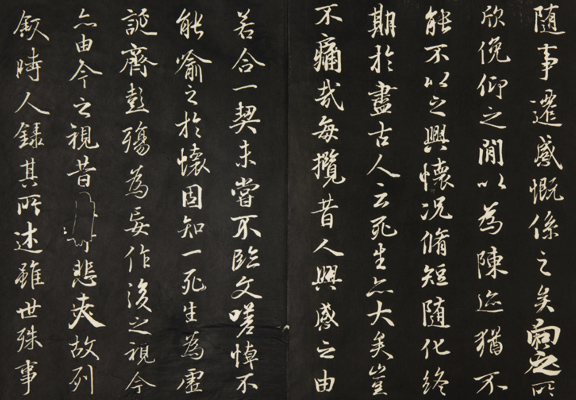 随事遷感慨係之矣向之所
欣俛仰之閒以為陳迹猶不
能不以之興懷况脩短随化終
期於盡古人云死生亦大矣豈
不痛哉每攬昔人興感之由
若合一契未嘗不臨文嗟悼不
能喻之於懷固知一死生為虛
誕齊彭殤為妄作後之視今
亦由今之視昔悲夫故列
叙時人録其所述雖世殊事